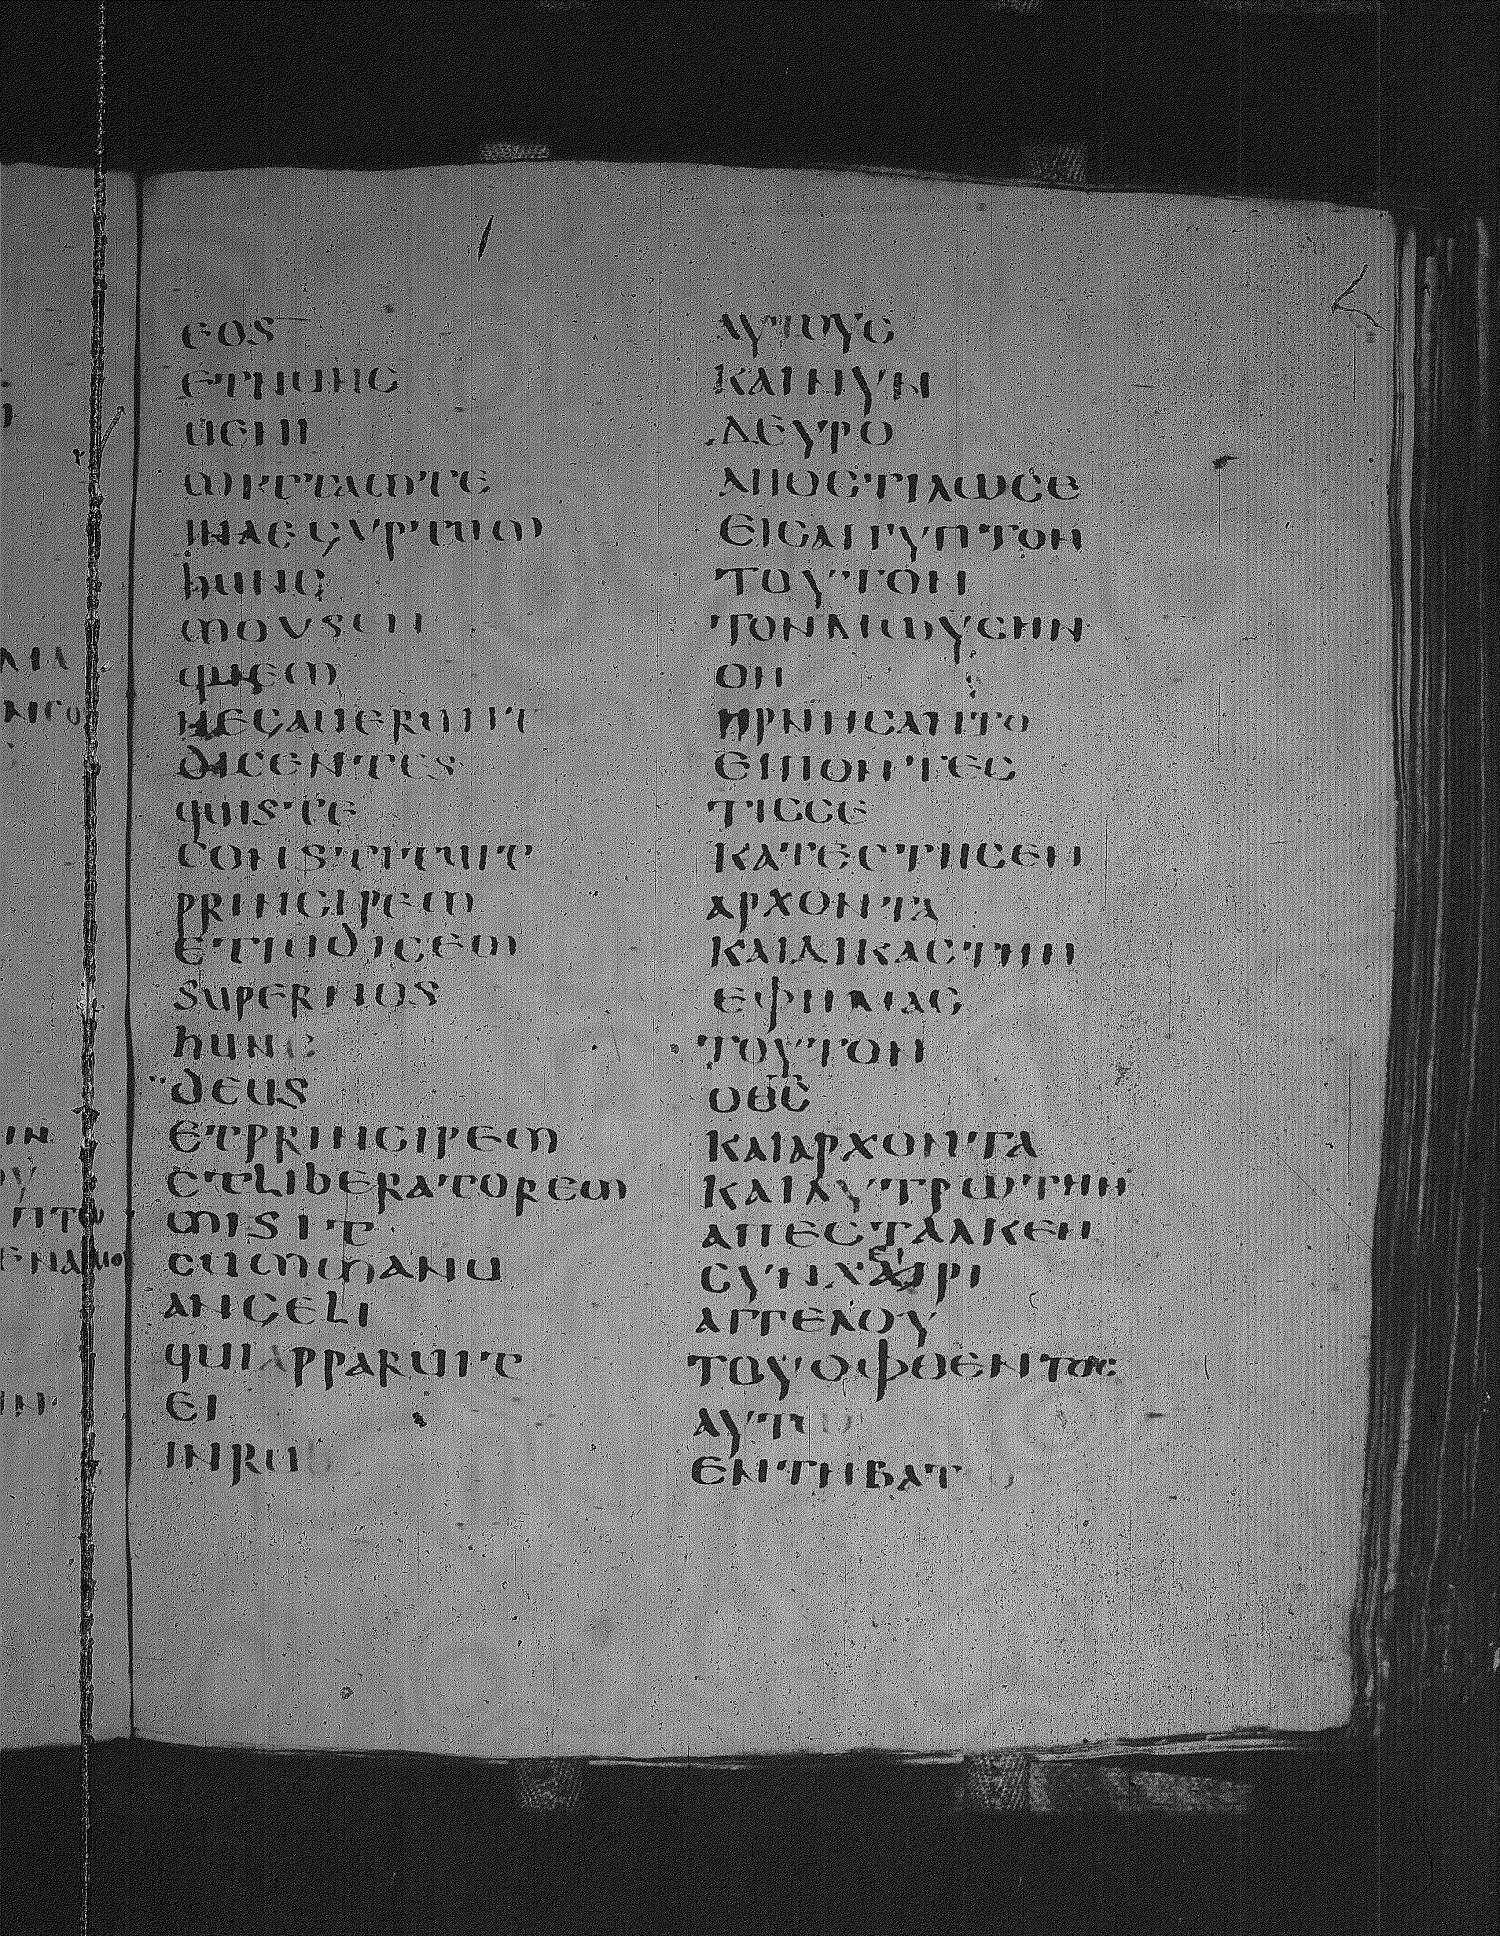 EOS
ETNUNC
UENI
MITTAMTE
INAEGYPTUM
hUNC
MOYSEN
QUEM
NEGAUERUNT
DICENTES
QUISTE
CONSTITUIT
PRINCIPEM
ETIUDICEM
SUPERNOS
hUNC
DEUS
ETPRINCIPEM
ETLIBERATOREM
MISIT
CUMMANU
ANGELI
QUIAPPARUIT
EI
INRUB
ΑΥΤΟΥϹ
ΚΑΙΝΥΝ
ΔΕΥΡΟ
ΑΠΟϹΤΙΛΩϹΕ
ΕΙϹΑΙΓΥΠΤΟΝ
ΤΟΥΤΟΝ
ΤΟΝΜΩΥϹΗΝ
ΟΝ
ΗΡΝΗϹΑΝΤΟ
ΕΙΠΟΝΤΕϹ
ΤΙϹϹΕ
ΚΑΤΕϹΤΗϹΕΝ
ΑΡΧΟΝΤΑ
ΚΑΙΔΙΚΑϹΤΗΝ
ΕΦΗΜΑϹ
ΤΟΥΤΟΝ
ΟΘϹ
ΚΑΙΑΡΧΟΝΤΑ
ΚΑΙΛΥΤΡΩΤΗΝ
ΑΠΕϹΤΑΛΚΕΝ
ϹΥΝΧΕΙΡΙ
ΑΓΓΕΛΟΥ
ΤΟΥΟΦΘΕΝΤΟϹ
ΑΥΤΩ
ΕΝΤΗΒΑΤΩ